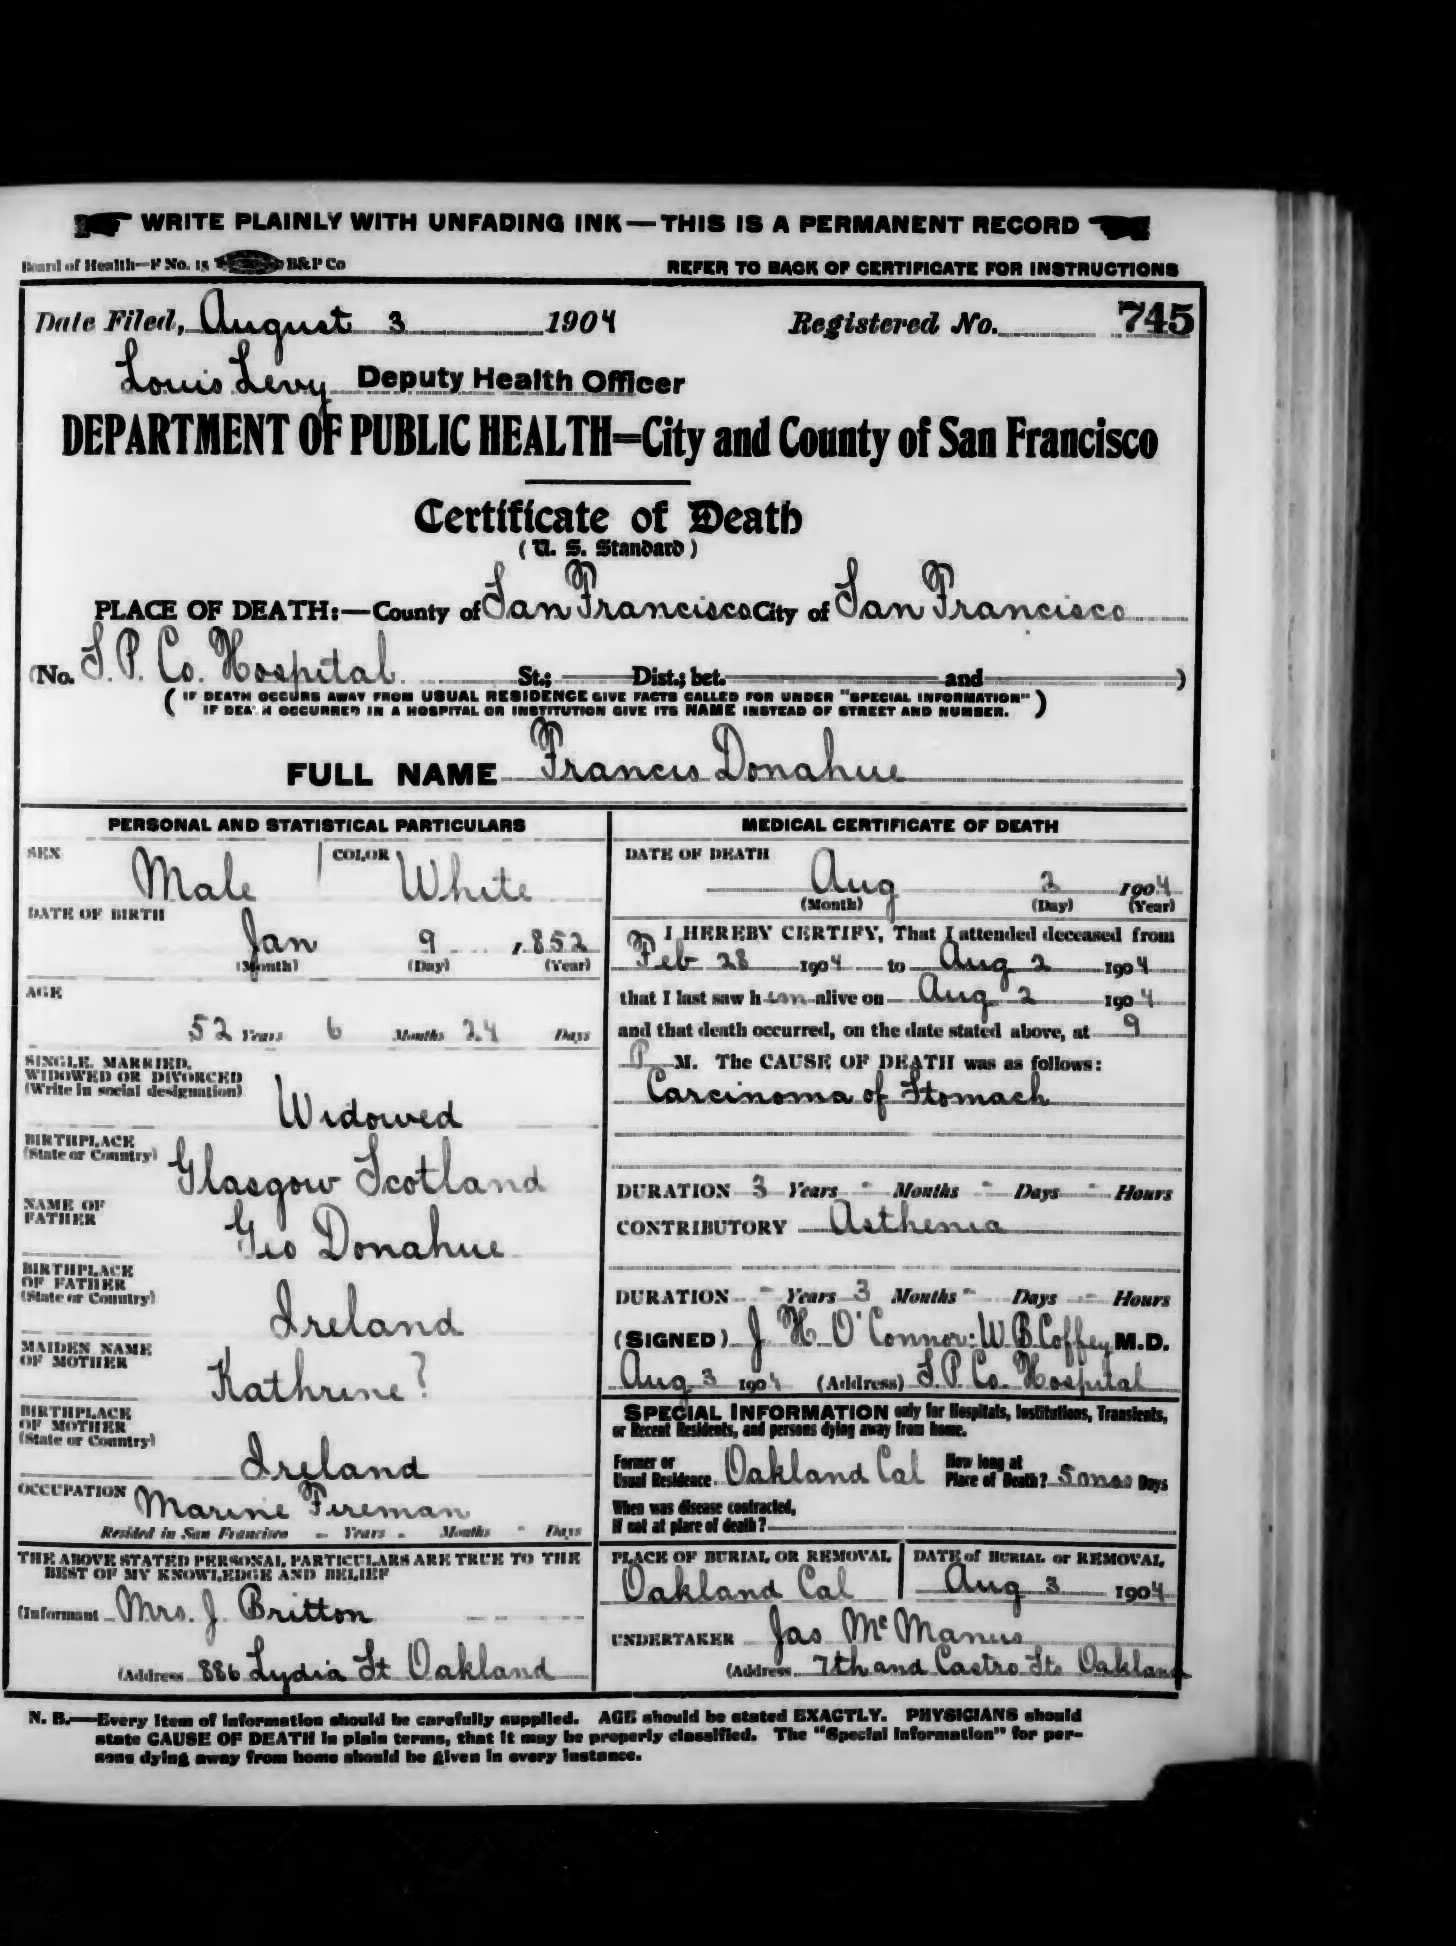 WRITE PLAINLY WITH UNFADING INK—THIS IS A PERMANENT RECORD
Board of Health—F No. 15 B&P Co
REFER TO BACK OF CERTIFICATE FOR INSTRUCTIONS
Date Filed, August 3 1904 Registered No. 745
Louis Levy Deputy Health Officer
DEPARTMENT OF PUBLIC HEALTH=City and County of San Francisco
Certificate of Death
(U. S. Standard)
PLACE OF DEATH:—County of San Francisco City of San Francisco
(No. S. P. Co. Hospital St.; Dist.; bet. and )
(IF DEATH OCCURS AWAY FROM USUAL RESIDENCE GIVE FACTS CALLED FOR UNDER "SPECIAL INFORMATION"
IF DEATH OCCURRED IN A HOSPITAL OR INSTITUTION GIVE ITS NAME INSTEAD OF STREET AND NUMBER.)
FULL NAME Francis Donahue
PERSONAL AND STATISTICAL PARTICULARS
SEX Male COLOR White
DATE OF BIRTH
Jan 9, 1852
(Month) (Day) (Year)
AGE
52 Years 6 Months 24 Days
SINGLE, MARRIED,
WIDOWED OR DIVORCED
(Write in social designation)
Widowed
BIRTHPLACE
(State or Country)
Glasgow Scotland
NAME OF
FATHER
Geo Donahue
BIRTHPLACE
OF FATHER
(State or Country)
Ireland
MAIDEN NAME
OF MOTHER
Kathrine ?
BIRTHPLACE
OF MOTHER
(State or Country)
Ireland
OCCUPATION Marine Fireman
Resided in San Francisco - Years - Months - Days
THE ABOVE STATED PERSONAL PARTICULARS ARE TRUE TO THE
BEST OF MY KNOWLEDGE AND BELIEF
(Informant Mrs. J. Britton
(Address 886 Lydia St Oakland
MEDICAL CERTIFICATE OF DEATH
DATE OF DEATH
Aug 3 1904
(Month) (Day) (Year)
I HEREBY CERTIFY, That I attended deceased from
Feb 28 1904 to Aug 2 1904
that I last saw him alive on Aug 2 1904
and that death occurred, on the date stated above, at 9
P M. The CAUSE OF DEATH was as follows:
Carcinoma of Stomach
DURATION 3 Years - Months - Days - Hours
CONTRIBUTORY Asthenia
DURATION - Years 3 Months - Days - Hours
(SIGNED) J. H. O'Connor: W. B. Coffey M.D.
Aug 3 1904 (Address) S. P. Co. Hospital
SPECIAL INFORMATION only for Hospitals, Institutions, Transients,
or Recent Residents, and persons dying away from home.
Former or
Usual Residence Oakland Cal
How long at
Place of Death? 5 mos Days
When was disease contracted,
If not at place of death?
PLACE OF BURIAL OR REMOVAL
Oakland Cal
DATE of BURIAL or REMOVAL
Aug 3 1904
UNDERTAKER Jas McManus
(Address 7th and Castro Sts Oakland
N. B.—Every item of information should be carefully supplied. AGE should be stated EXACTLY. PHYSICIANS should
state CAUSE OF DEATH in plain terms, that it may be properly classified. The "Special Information" for per-
sons dying away from home should be given in every instance.